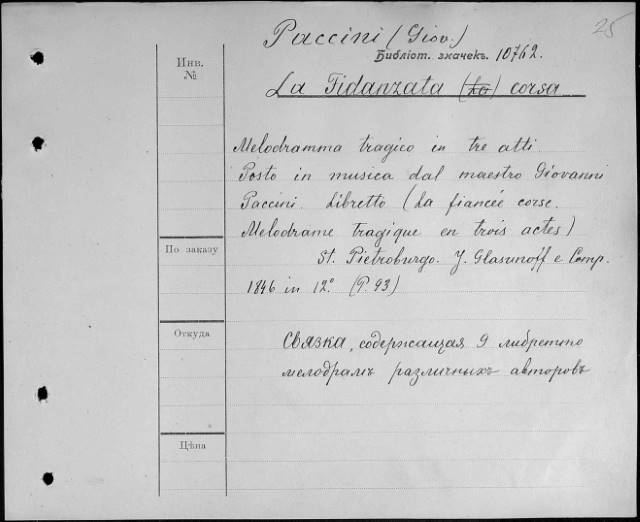 25
Paccini (Giov.)
Библіот. значекъ. 10762.
Инв.
№
La Fidanzata (La) corsa
Melodramma tragico in tre atti
Posto in musica dal maestro Giovanni
Paccini. Libretto (La fiancée corse.
Melodrame tragique en trois actes)
По заказу
St. Pietroburgo. J. Glasunoff e Comp.
1846 in 12° (P. 93)
Откуда
Связка, содержащая 9 либретто
мелодрамъ различныхъ авторовъ
Цѣна